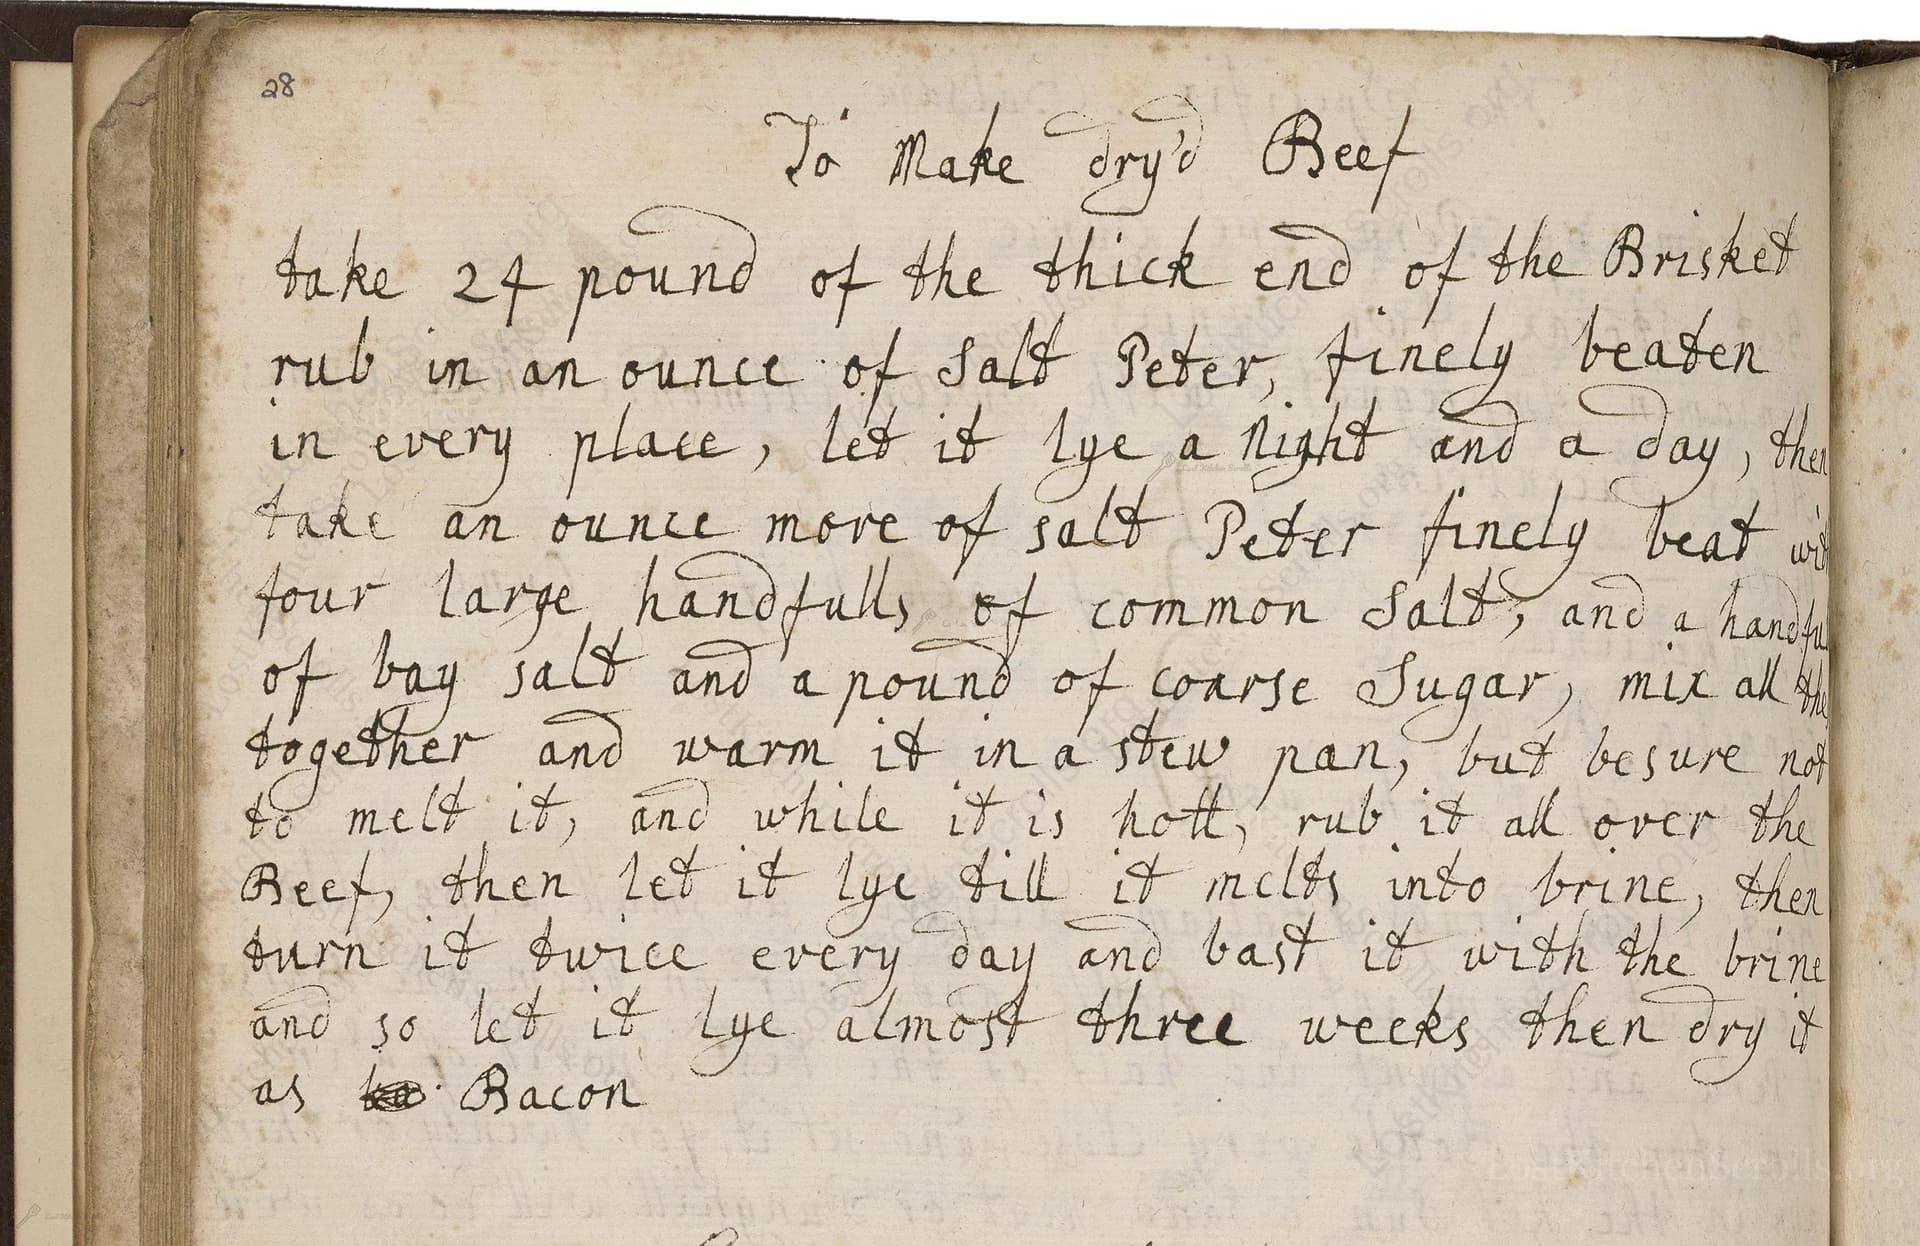 28
To Make dry'd Beef
take 24 pound of the thick end of the Brisket
rub in an ounce of Salt Peter, finely beaten
in every place, let it lye a Night and a day, then
take an ounce more of salt Peter finely beat
four large handfulls of common Salt, and a handfu
of bay salt and a pound of coarse Sugar, mix all the
together and warm it in a stew pan, but be sure not
to melt it, and while it is hott, rub it all over the
Beef, then let it lye till it melts into brine, then
turn it twice every day and bast it with the brine
and so let it lye almost three weeks then dry it
as Bacon